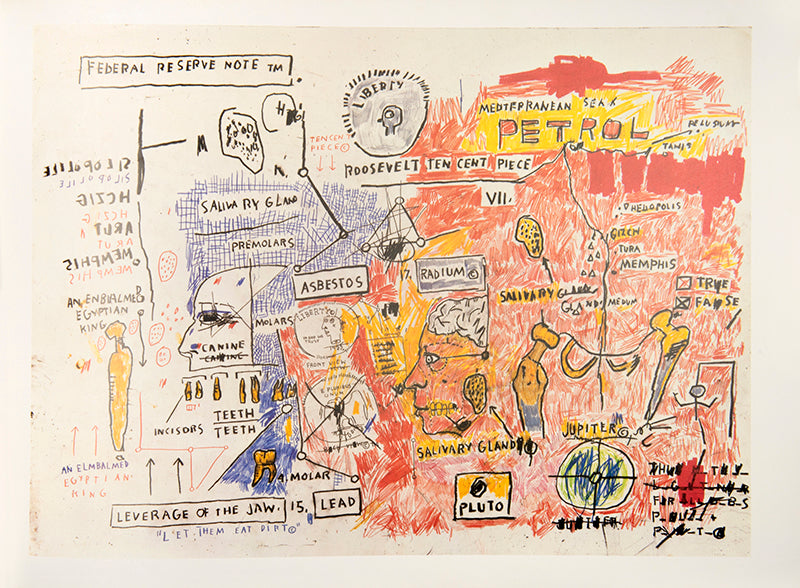 FEDERAL RESERVE NOTE TM.
LIBERTY
MEDITERRANEAN SEA
PETROL
PELUSIUM
TANIS
TEN CENT
PIECE ©
ROOSEVELT TEN CENT PIECE
VII.
SILOPOLILE
SILOPOLILE
HCZIG
HCZIG
ARUT
ARUT
MEMPHIS
MEMPHIS
AN ENBIALMED
EGYPTIAN
KING
SALIVARY GLAND
PREMOLARS
ASBESTOS
17. RADIUM ©
HELIOPOLIS
GIZCH
TURA
MEMPHIS
MEDUM
SALIVARY GLAND
GLAND
TRUE
FALSE
MOLARS
CANINE
CANINE
LIBERTY
FRONT VIEW
INCISORS
TEETH
TEETH
4. MOLAR
AN ELMBALMED
EGYPTIAN-
KING
LEVERAGE OF THE JAW. 15. LEAD
"L'ET THEM EAT DIRT©"
SALIVARY GLAND
PLUTO
JUPITER ©
JUPITER